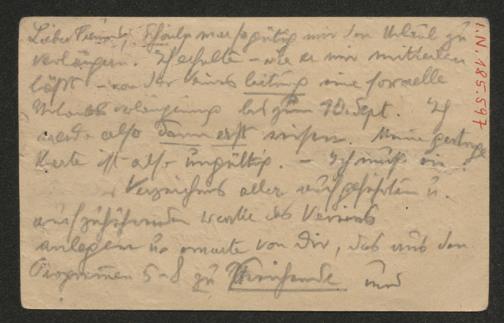 Lieber Freund, Schönberg mir den Urlaub zu
verlängern. Ich erhalte – wie er mir mitteilen
läßt – von der Vereinsleitung eine formelle
Urlaubsverlängerung bis zum 10. Sept. Ich
werde also dann erst reisen. Meine gestrige
Karte ist also ungültig. – Ich muß ein
Verzeichnis aller aufgeführten u.
aufzuführenden Werke des Vereins
anlegen u. erwarte von Dir, das aus den
Programmen 5–8 zu und
I.N. 185.597